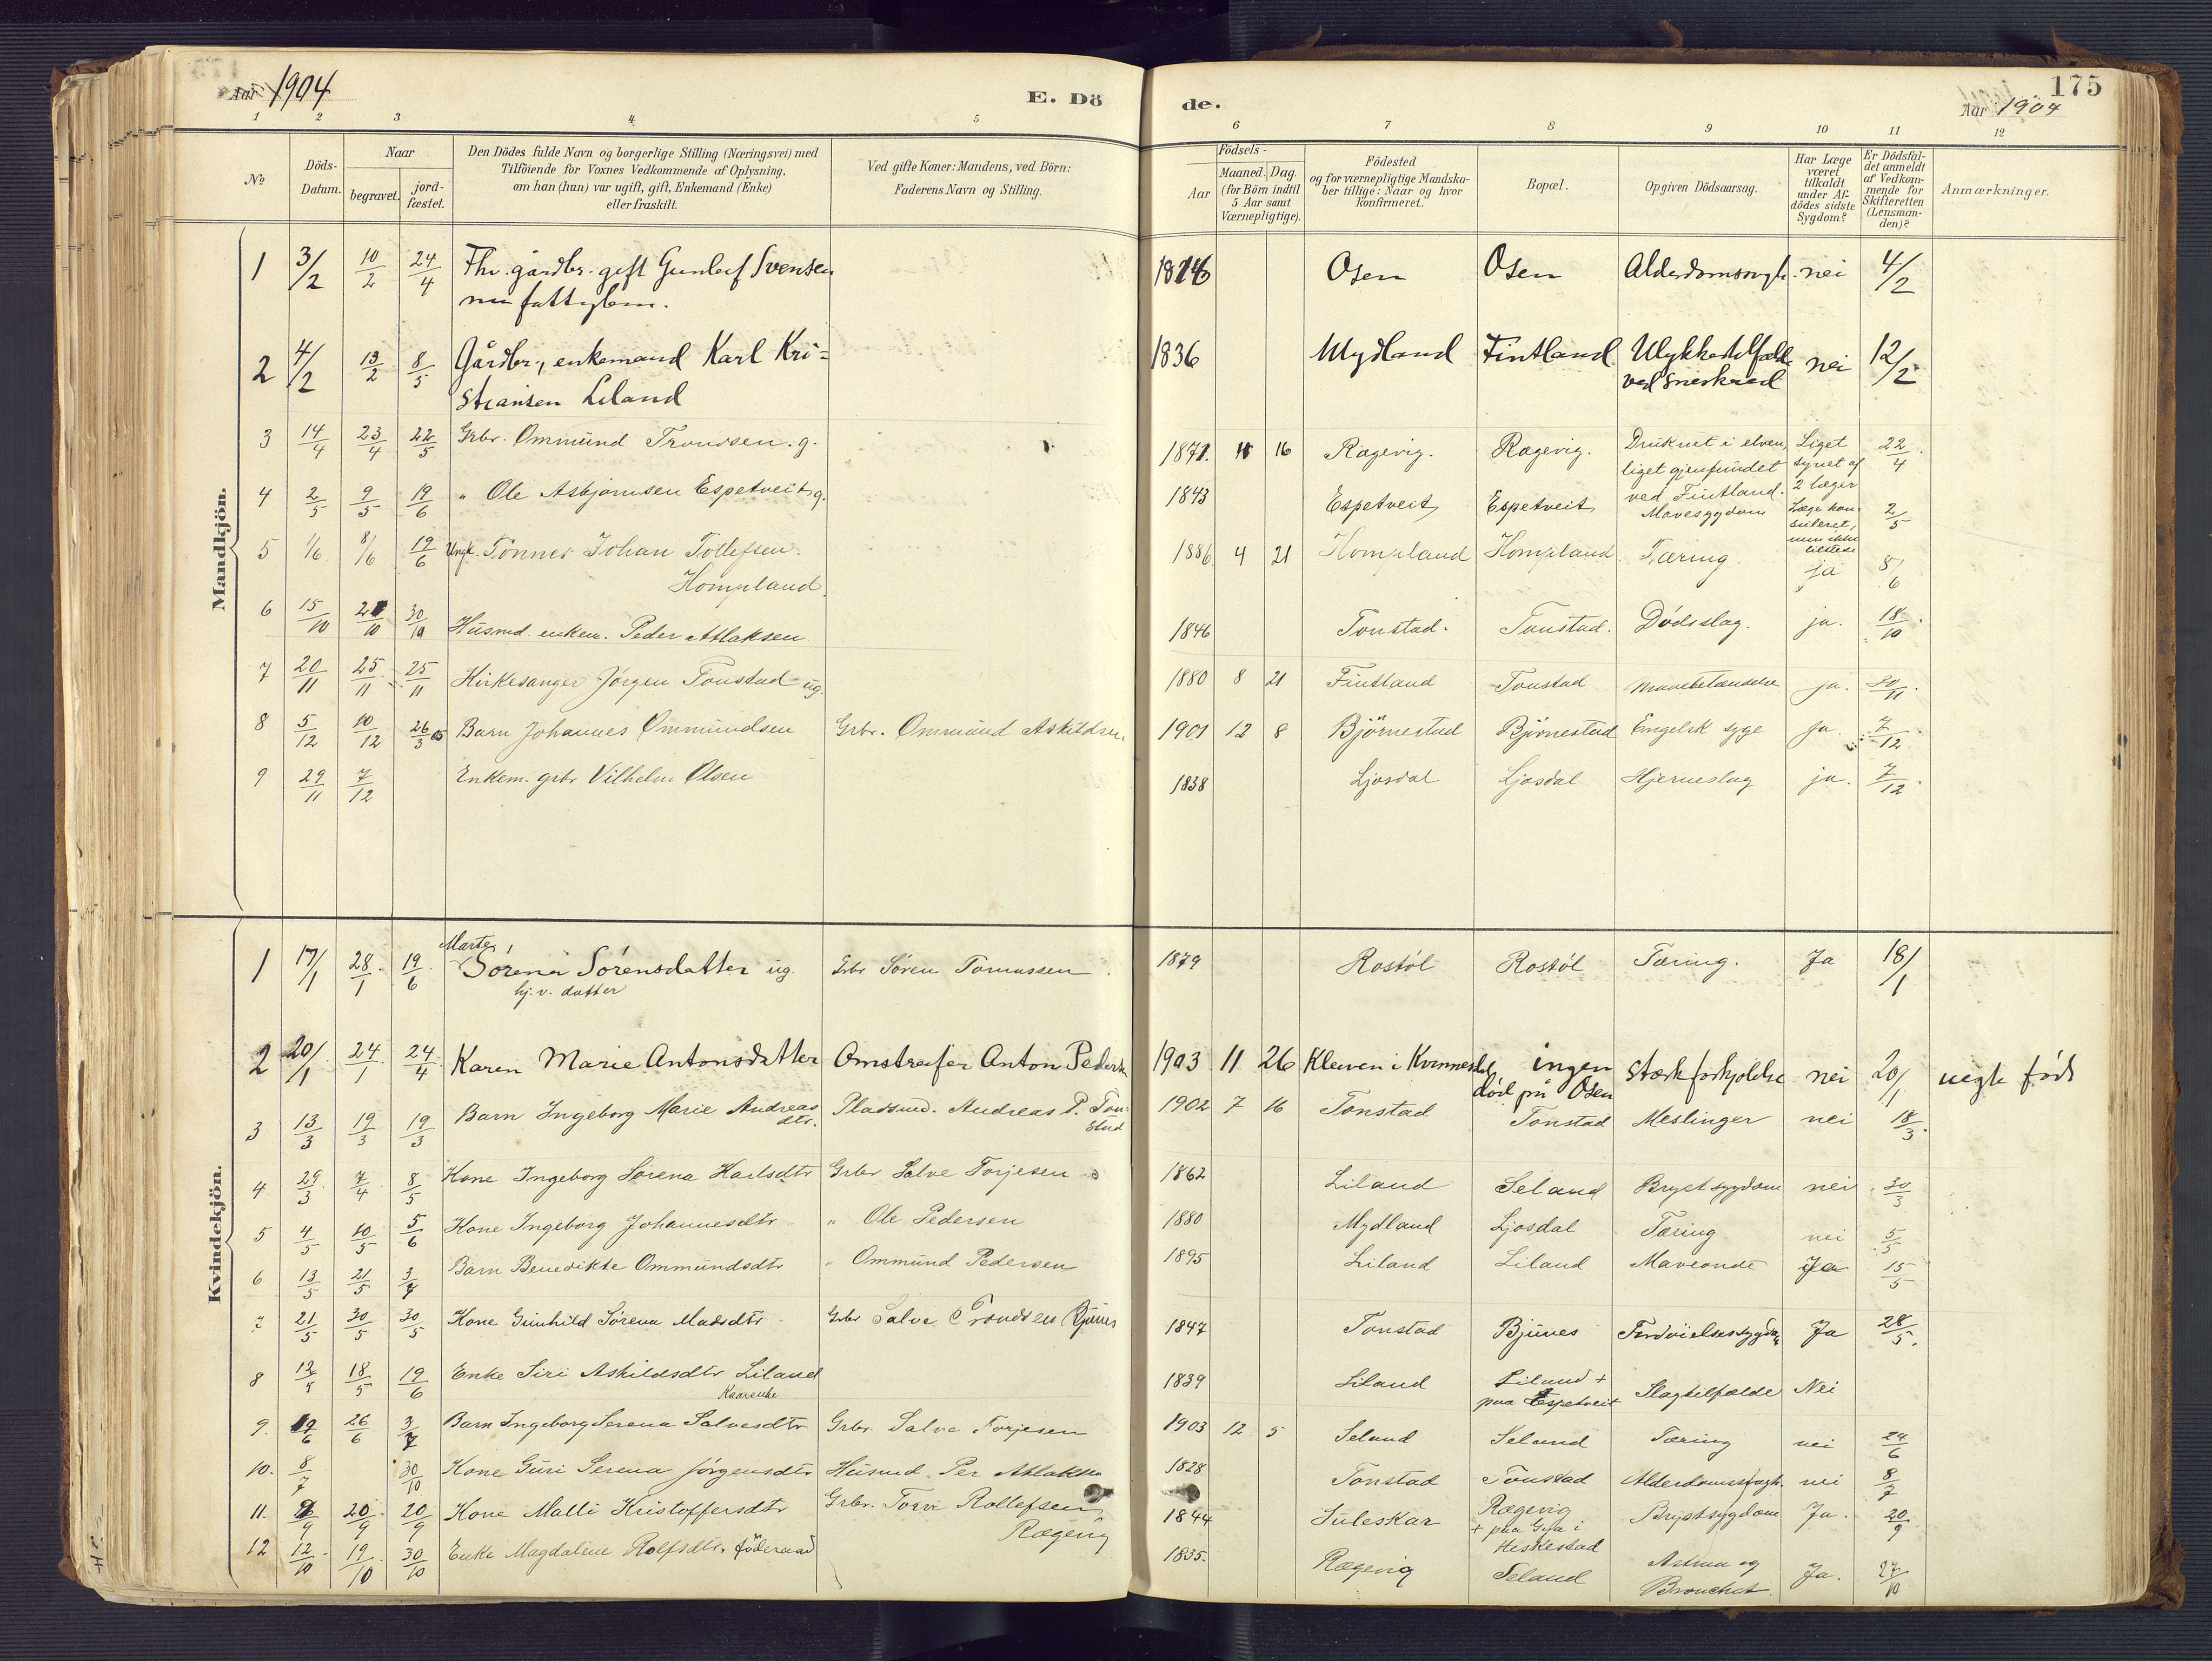 Aar 1904
E. Dö
de.
175
Aar 1904
1 2 3 4 5 6 7 8 9 10 11 12
No
Döds-Datum.
Naar
begravet.
jord-fæstet.
Den Dödes fulde Navn og borgerlige Stilling (Næringsvei) med
Tilföiende for Voxnes Vedkommende af Oplysning,
om han (hun) var ugift, gift, Enkemand (Enke)
eller fraskilt.
Ved gifte Koner: Mandens, ved Börn:
Faderens Navn og Stilling.
Födsels-
Aar
Maaned. Dag.
(for Börn indtil
5 Aar samt
Værnepligtige).
Födested
og for værnepligtige Mandska-
ber tillige: Naar og hvor
konfirmeret.
Bopæl.
Opgiven Dödsaarsag.
Har Læge
været
tilkaldt
under Af-
dödes sidste
Sygdom?
Er Dödsfal-
det anmeldt
af Vedkom-
mende for
Skifteretten
(Lensman-
den)?
Anmærkninger.
Mandkjön.
1 3/2 10/2 24/4 Fhv. gårdbr. gift Gunleif Svensen 1826 Osen Osen nei 4/2
2 4/2 13/2 8/5 Gårdbr., enkemand Karl Kri= 1836 Mydland Fintland Ulykkestilfælde nei 12/2
stiansen Liland ved sneskred
3 14/4 23/4 22/5 Grbr. Ommund Trondsen. g. 1871. 16 Rægevig. Rægevig. Druknet i elven, Liget 22/4
liget gjenfundet synet af
ved Fintland. 2 læger
4 2/5 9/5 19/6 " Ole Asbjørnsen Espetveit g. 1843 Espetveit Espetveit Mavesygdom Læge kon- 2/5
suleret,
men ikke
tilstede
5 1/6 8/6 19/6 Ungk. Tønnes Johan Tollefsen. 1886 4 21 Hompland Hompland Tæring ja 8/6
Hompland.
6 15/10 21/10 30/10 Husmd. enkem. Peder Atlaksen 1846 Tonstad. Tonstad. Dødsslag. ja. 18/10
7 20/11 25/11 25/11 Kirkesanger Jørgen Tonstad ug. 1880 8 21 Fintland Tonstad Mavebetændelse ja.
8 5/12 10/12 26/3 05 Barn Johannes Ommundsen Grbr. Ommund Askildsen 1901 12 8 Bjørnestad Bjørnestad Engelsk syge ja. 7/12
9 29/11 7/12 Enkem. grbr Vilhelm Olsen 1838 Ljosdal Ljosdal Hjerneslag ja. 7/12
Kvindekjön.
Marte
1 17/1 28/1 19/6 Sørena Sørensdatter ug. Grbr Søren Tomassen 1879 Rostøl Rostøl Tæring. Ja 18/1
hj. v. datter
2 20/1 24/1 24/4 Karen Marie Antonsdatter Omstreifer Anton Pedersen 1903 11 26 Kleiven i Kvinnesdal ingen stærk forkjølelse nei 20/1 uegte født
død på Osen
3 13/3 19/3 19/3 Barn Ingeborg Marie Andreas Pladsmd. Andreas P. Ton- 1902 7 16 Tonstad Tonstad Meslinger nei 18/3
dtr. stad
4 29/3 7/4 8/5 Kone Ingeborg Sørena Karlsdtr Grbr Salve Torjesen 1862 Liland Seland Brystsygdom nei 30/3
5 4/5 10/5 5/6 Kone Ingeborg Johannesdtr " Ole Pedersen 1880 Mydland Ljosdal Tæring nei 5/5
6 13/5 21/5 Barn Benedikte Ommundsdtr " Ommund Pedersen 1895 Liland Liland Maveonde Ja 15/5
7 21/5 30/5 30/5 Kone Gunhild Sørena Madsdtr Grbr Salve Trondsen Bjunes 1847 Tonstad Bjunes Fordøielsessygdom Ja 28/5
8 18/5 19/6 Enke Siri Askildsdtr Liland 1839 Liland Liland + Slagtilfælde Nei
Kaarenke paa Espetveit
9. 26/6 Barn Ingeborg Serena Salvesdtr Grbr. Salve Torjesen 1903 12 5 Seland Seland Tæring nei 24/6
10. 8/7 30/10 Kone Guri Serena Jørgensdtr Husmd Per Atlaksen 1828 Tonstad Tonstad Alderdomssvagh. nei 8/7
11. 20/9 20/9 Kone Malli Kristoffersdtr Grbr. Rollefsen 1844 Suleskar Rægevig Brystsygdom Ja. 20/9
Rægevig + paa Gya i
Heskestad
12 12/10 19/10 30/10 Enke Magdalene Rolfsdtr. føderaad 1835. Rægevig Seland Astma og Ja. 27/10
Bronchit